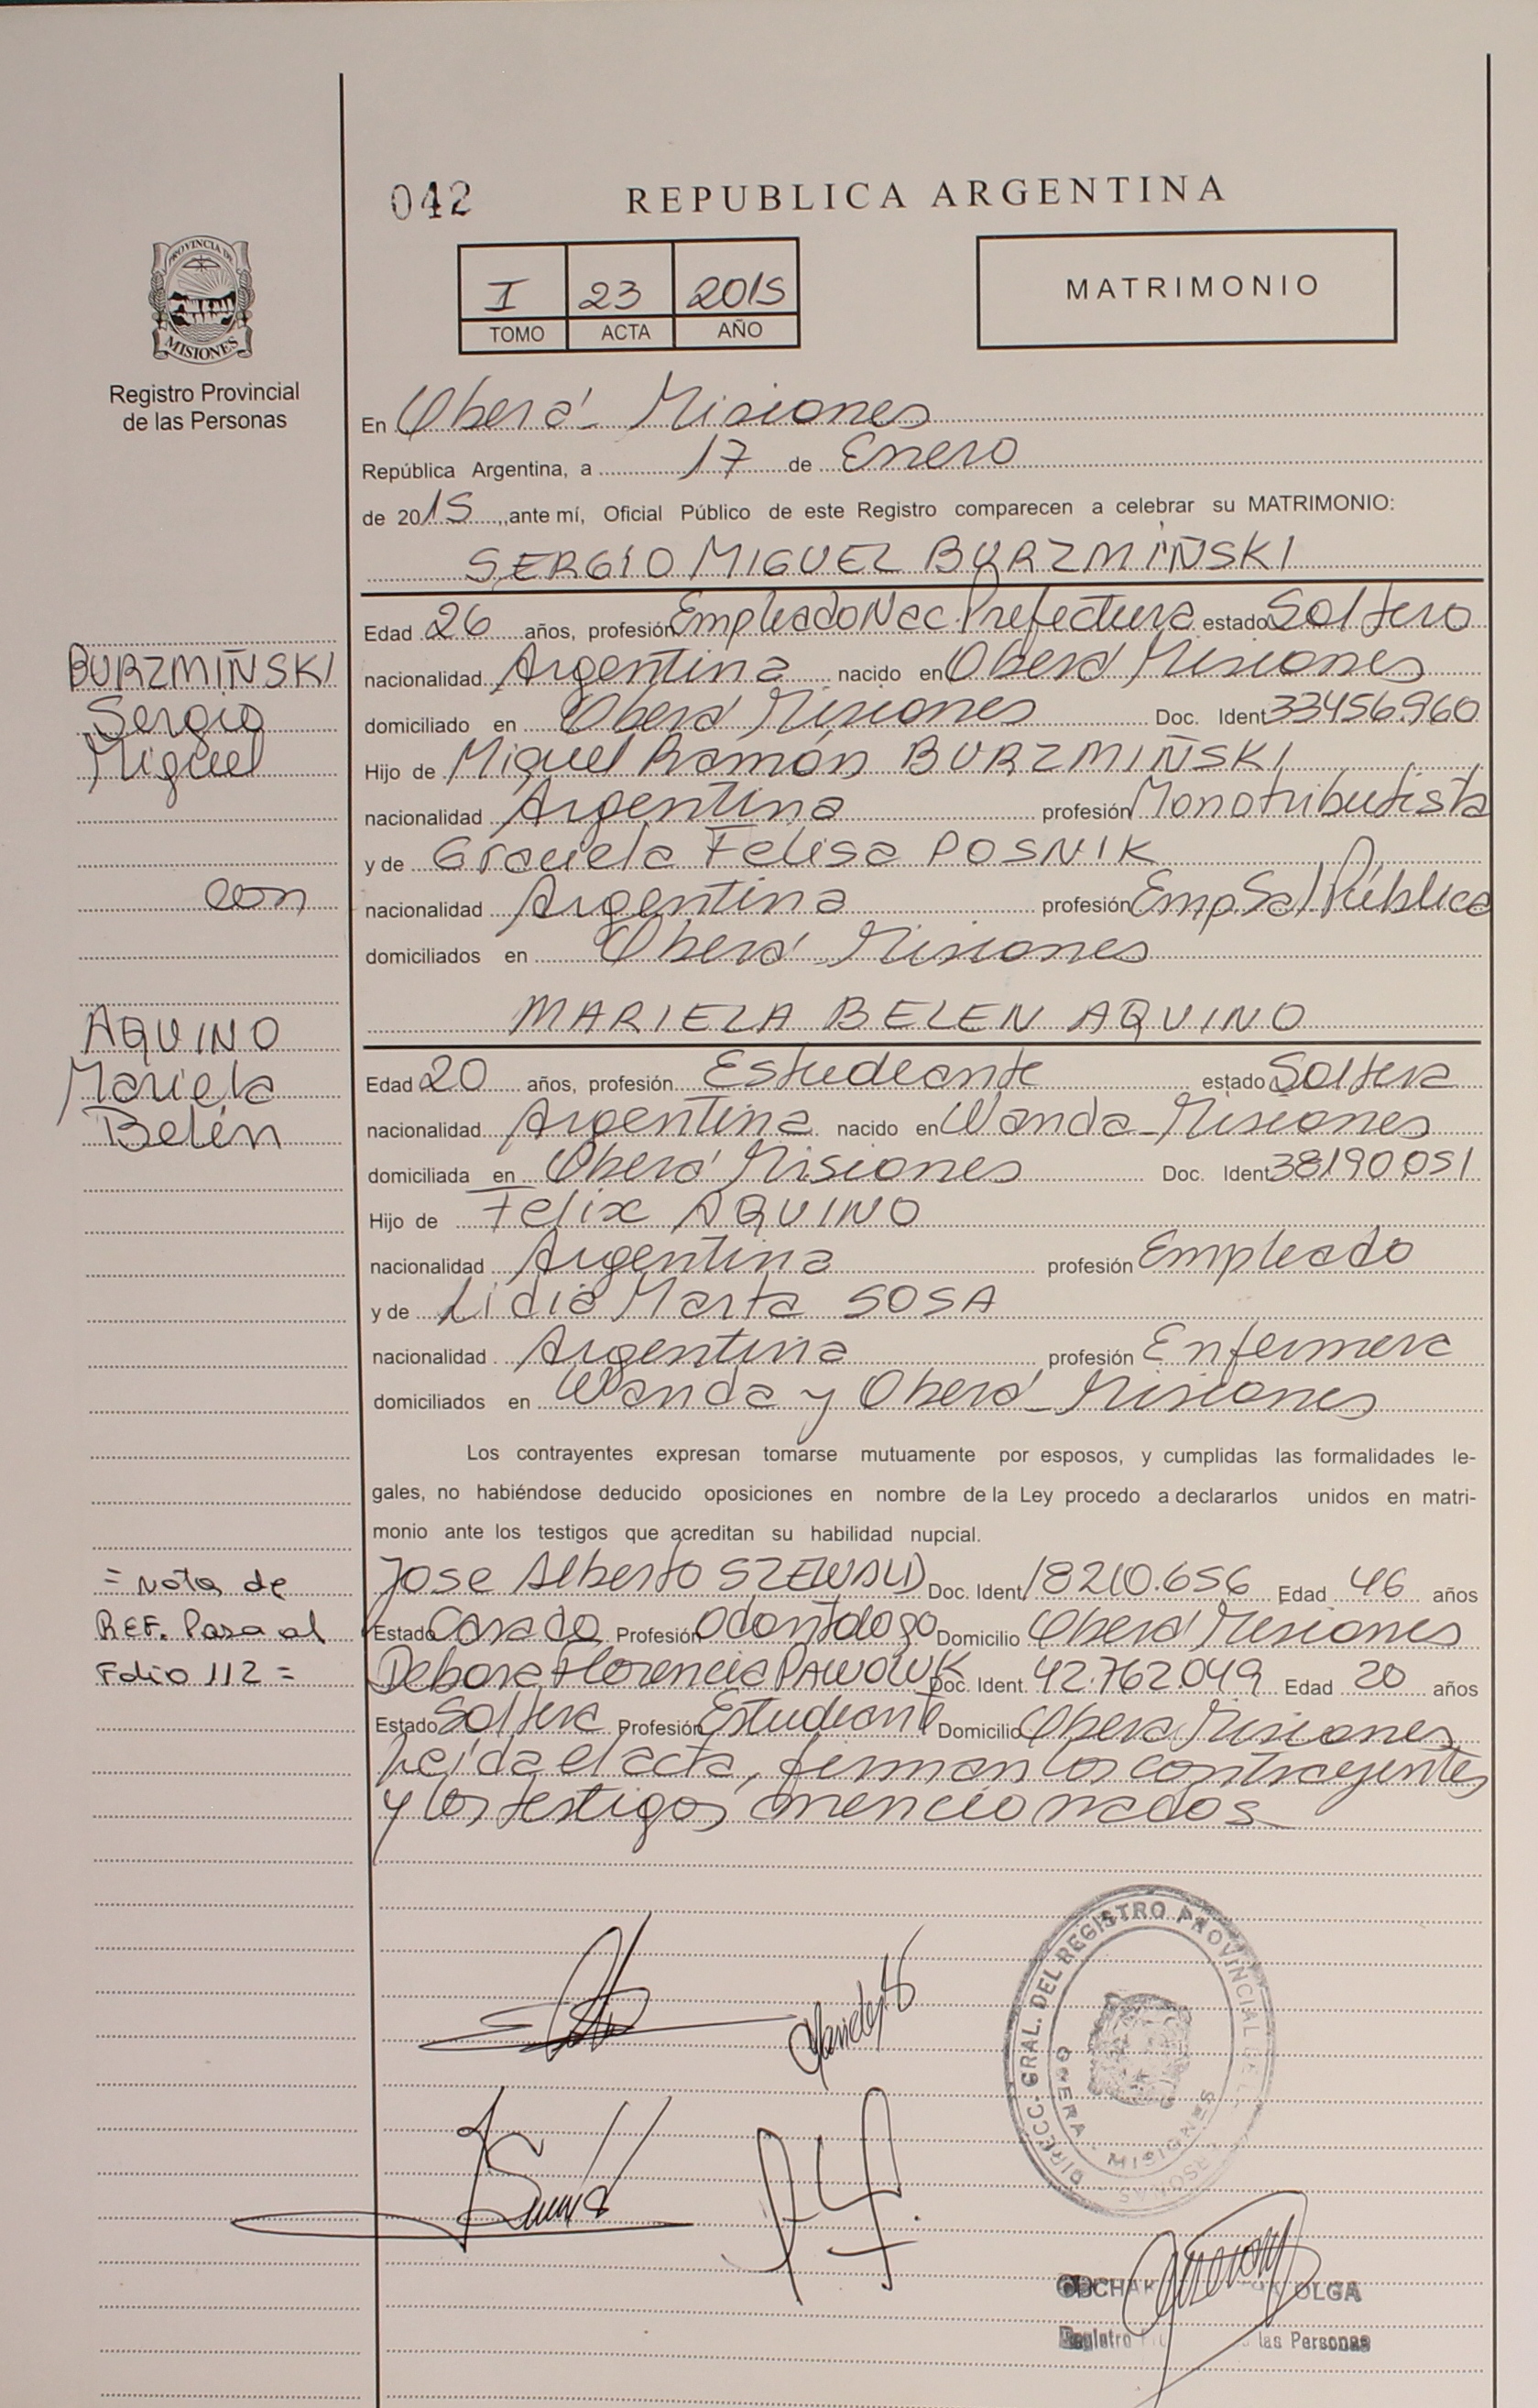 042
REPUBLICA ARGENTINA
PROVINCIA DE
MISIONES
Registro Provincial
de las Personas
I 23 2015
TOMO ACTA AÑO
MATRIMONIO
En Oberá - Misiones
República Argentina, a 17 de Enero
de 2015, ante mí, Oficial Público de este Registro comparecen a celebrar su MATRIMONIO:
SERGIO MIGUEL BURZMIÑSKI
Edad 26 años, profesión Empleado Nac. Prefectura estado Soltero
BURZMIÑSKI
nacionalidad Argentina nacido en Oberá Misiones
Sergio
domiciliado en Oberá Misiones Doc. Ident 33456.960
Miguel
Hijo de Miguel Ramón BURZMIÑSKI
nacionalidad Argentina profesión Monotributista
y de Graciela Felisa POSNIK
con
nacionalidad Argentina profesión Emp Sal Pública
domiciliados en Oberá - Misiones
MARIELA BELEN AQUINO
AQUINO
Edad 20 años, profesión Estudiante estado Soltera
Mariela
nacionalidad Argentina nacido en Wanda - Misiones
Belén
domiciliada en Oberá Misiones Doc. Ident 38190.051
Hijo de Felix AQUINO
nacionalidad Argentina profesión Empleado
y de Lidia Marta SOSA
nacionalidad Argentina profesión Enfermera
domiciliados en Wanda y Oberá - Misiones
Los contrayentes expresan tomarse mutuamente por esposos, y cumplidas las formalidades le-
gales, no habiéndose deducido oposiciones en nombre de la Ley procedo a declararlos unidos en matri-
monio ante los testigos que acreditan su habilidad nupcial.
= Nota de
REF. Pasa al
Folio 112 =
Jose Alberto SZEWALD Doc. Ident 18210.656 Edad 46 años
Estado Casado Profesión Odontologo Domicilio Oberá Misiones
Debora Florencia PAWOWK Doc. Ident. 42.762.049 Edad 20 años
Estado Soltera Profesión Estudiante Domicilio Obera Misiones
Leida el acta, firman los contrayentes
y los testigos mencionados
DIRECC. GRAL. DEL REGISTRO PROVINCIAL DE L PERSONAS
OBERA - MISIONES
OLGA
Registro las Personas